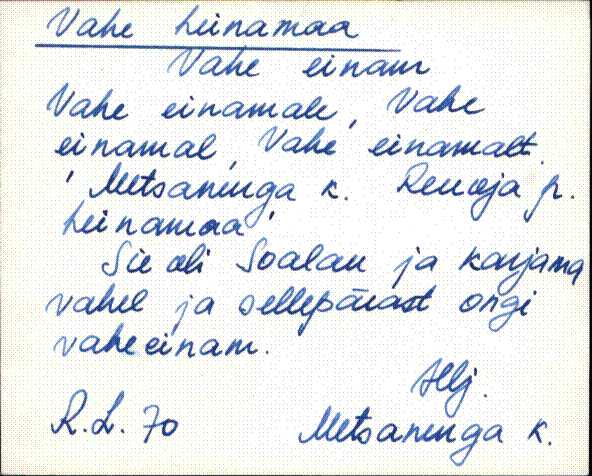 Vahe heinamaa
Vahe einam
Vahe einamale, Vahe
einamal, Vahe einamalt.
' Metsanenga k. Reuoja p.
heinamaa'
Sie oli Soalau ja karjama
vahel ja sellepärast ongi
vaheeinam.
Hlj.
R.L. 70 Metsanenga k.